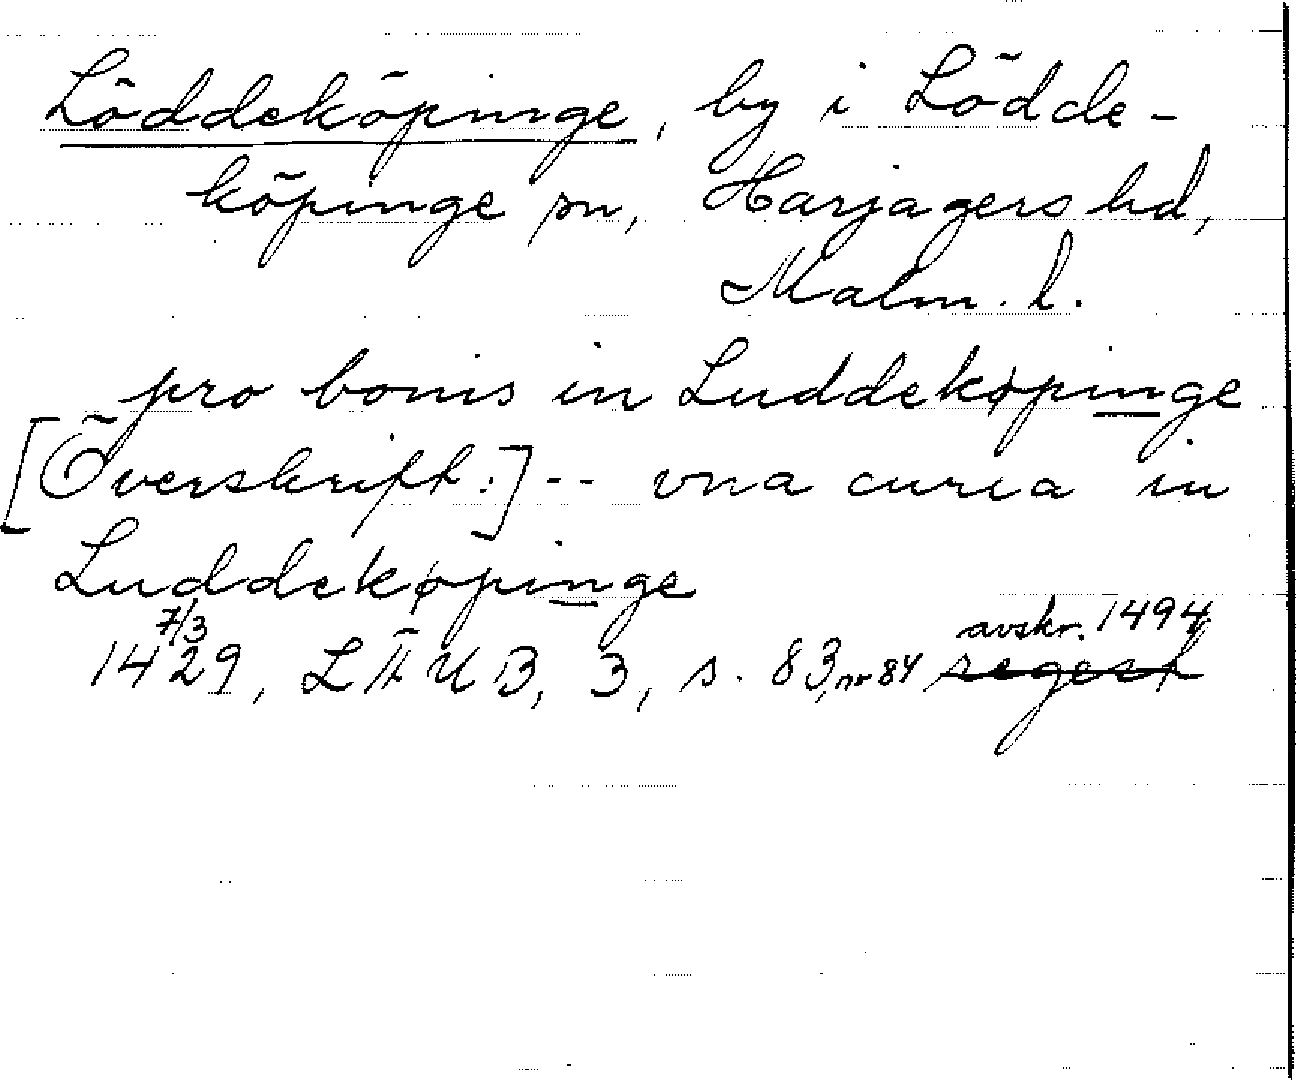 Löddeköpinge, by i Lödde-
köpinge sn, Harjagers hd,
Malm. l.
pro bonis in Luddekøpinge
[Överskrift:] -- vna curia in
Luddekøpinge
7/3 avskr. 1494
1429, LÄUB, 3, s. 83, nr 84 regest